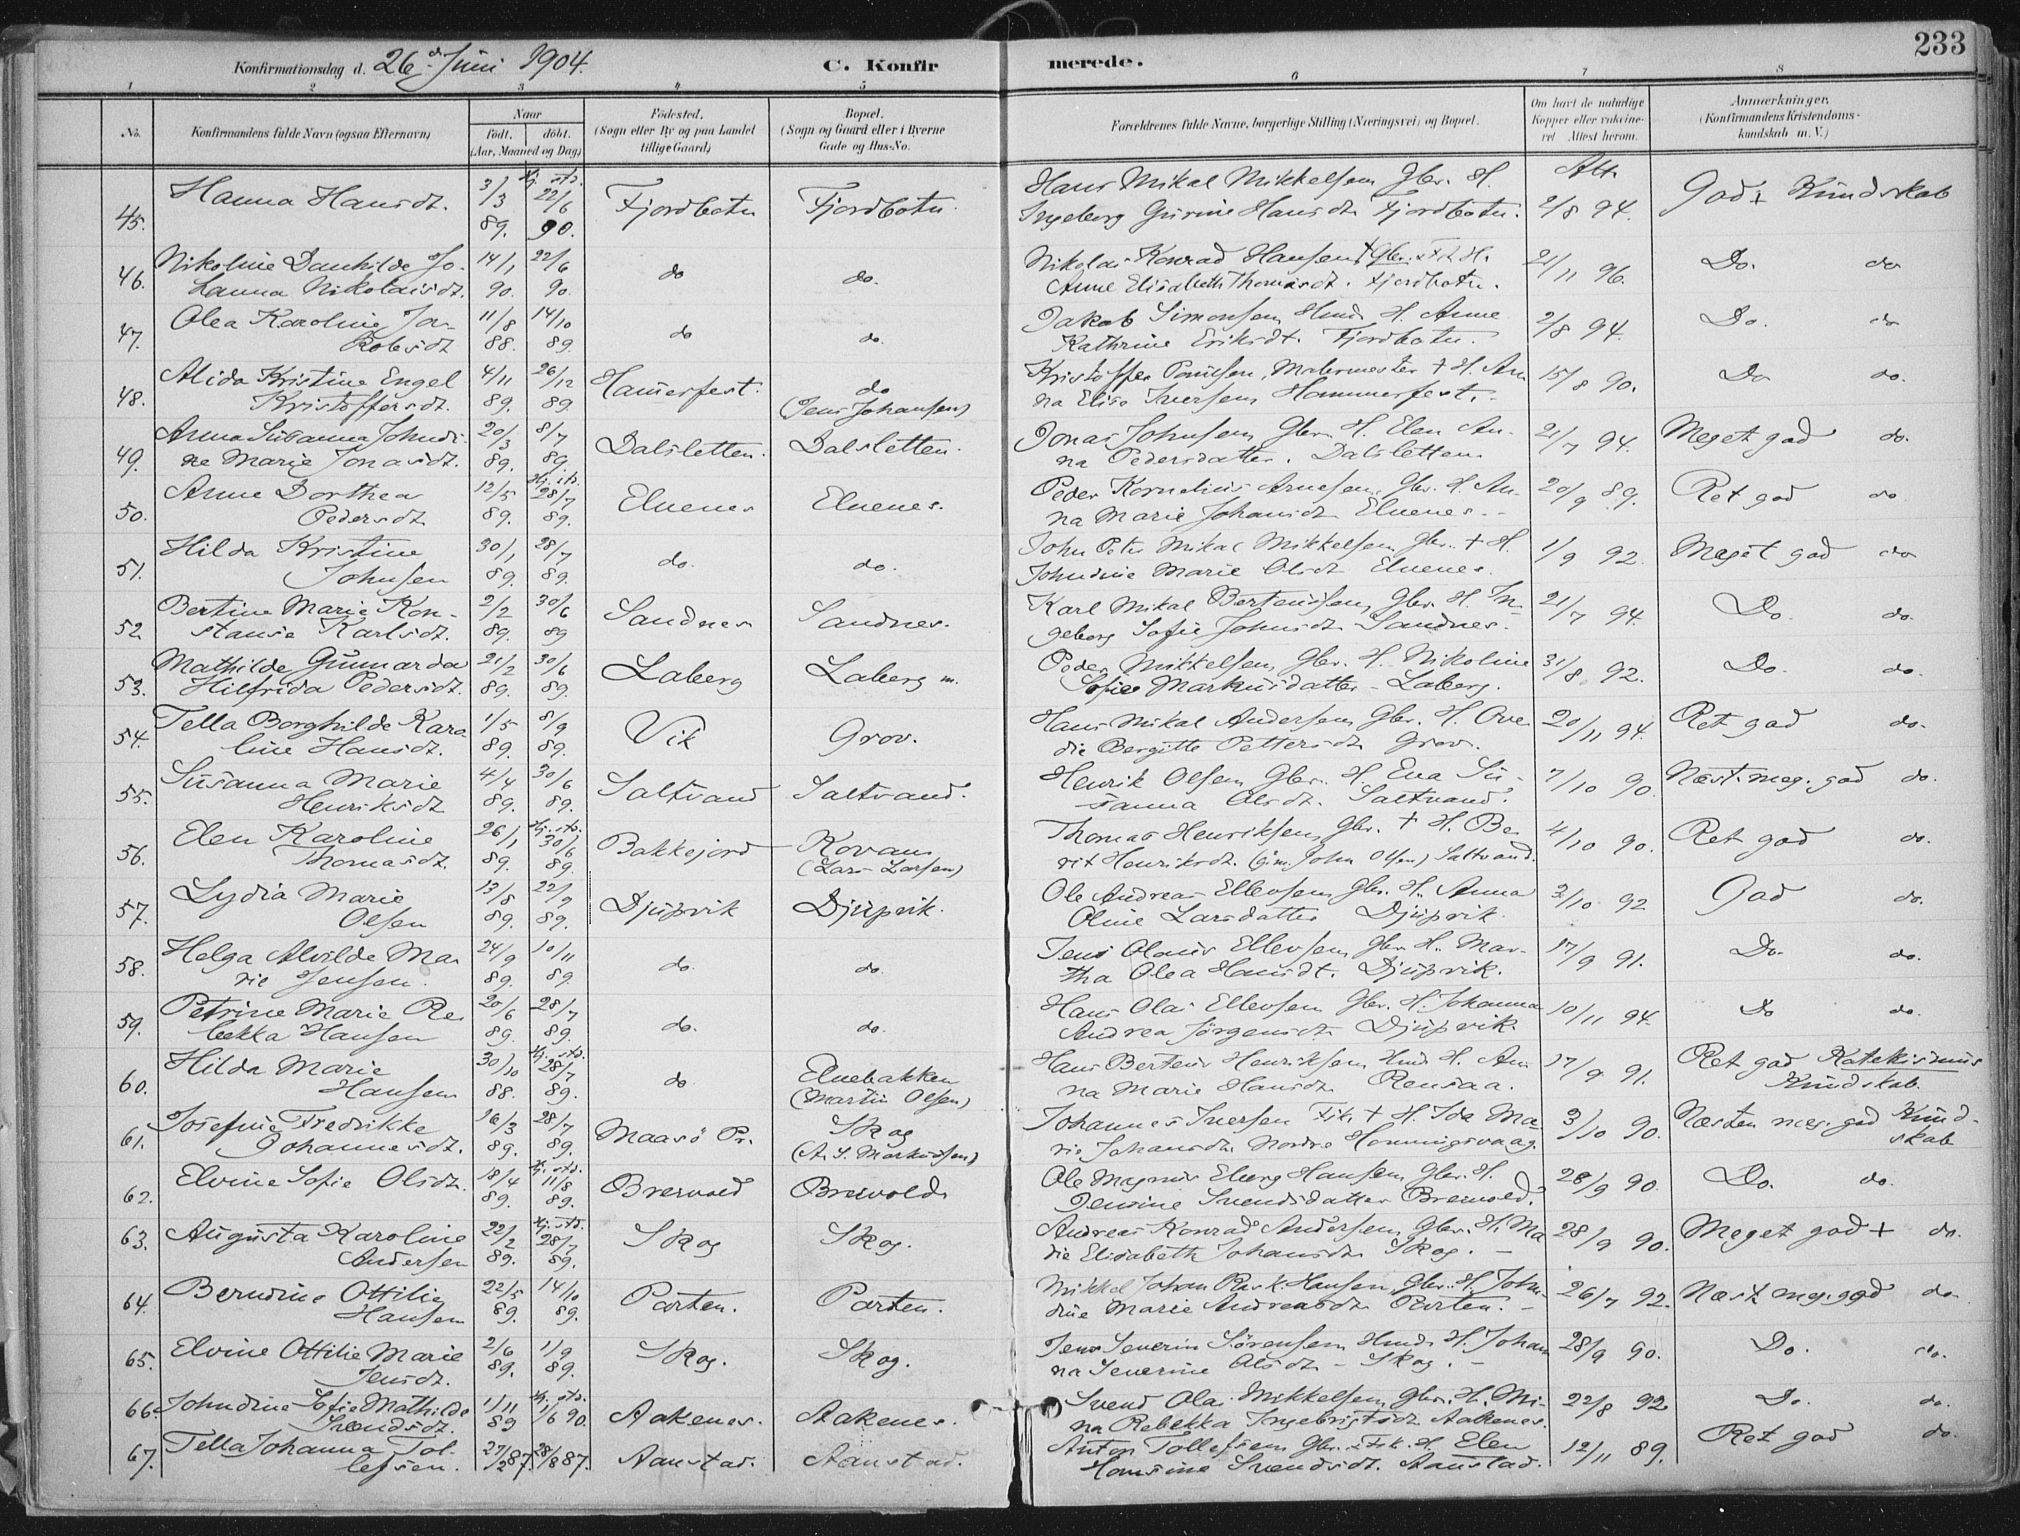 233
Konfirmationsdag d. 26de Juni 1904. C. Konfirmerede.
1 2 3 4 5 6 7 8
No. Konfirmandens fulde Navn (ogsaa Efternavn) Naar født, døbt. (Aar, Maaned og Dag) Fødested. (Sogn eller By og paa Landet tillige Gaard) Bopæl. (Sogn og Gaard eller i Byerne Gade og Hus-No. Forældrenes fulde Navne, borgerlige Stilling (Næringsvei) og Bopæl. Om havt de naturlige Kopper eller vakcineret Attest herom. Anmærkninger. (Konfirmandens Kristendomskundskab m. V.)
45. Hanna Hansdt. 3/3 89. Hj. stb. 22/6 90. Fjordbotn Fjordbotn. Hans Mikal Mikkelsen Gbr. H. Ingeborg Gurine Hansdt. Fjordbotn. Att. 2/8 94. God + Kundskab
46. Nikoline Danhilde Johanna Nikolaisdt. 14/1 90. 22/6 90. do do. Nikolai Konrad Hansen + Gbr. + Fsk. H. Anne Elisabeth Thomasdt. Fjordbotn. 21/11 96. Do. do
47. Olea Karoline Jakobsdt 11/8 88. 14/10 89. do do. Jakob Simonsen Hmd. H. Anne Kathrine Eriksdt. Fjordbotn. 2/8 94. Do. do
48. Alida Kristine Engel Kristoffersdt. 4/11 89. 26/12 89. Hamerfest. do (Jens Johansen) Kristoffer Poulsen, Malermester + H. Anna Elise Iversen Hammerfest. 15/8 90. Do do.
49. Anna Susanna Johndine Marie Jonasdt. 20/3 89. 8/7 89. Dalsletten. Dalsletten. Jonas Johnsen Gbr. H. Elen Anna Pedersdatter. Dalsletten 21/7 94. Meget god do.
50. Anne Dorthea Pedersdt 12/5 89. Hj. stb. 28/7 89. Elvenes Elvenes. Peder Kornelius Arnesen, Gbr. H. Anna Marie Johansdt. Elvenes. 20/9 89. Ret god do
51. Hilda Kristine Johnsen 30/1 89. 28/7 89. do. do. John Peter Mikal Mikkelsen Gbr. + H. Johndine Marie Olsdt Elvenes. 1/9 92. Meget god do
52 Bertine Marie Konstanse Karlsdt. 2/2 89. 30/6 89 Sandnes Sandnes. Karl Mikal Berteussen, Gbr. H. Ingeborg Sofie Johnsdt. Sandnes. 21/7 94. Do. do.
53. Mathilde Gunnarda Hilfrida Pedersdt. 21/2 89. 30/6 89. Laberg Laberg m. Peder Mikkelsen, Gbr. H. Nikoline Sofie Markusdatter - Laberg. 31/8 92. Do. do.
54. Tella Borghilde Karoline Hansdt. 1/5 89. 8/9 89. Vik Grov. Hans Mikal Andersen, Gbr. H. Ovedie Bergitte Pettersdt. Grov. 20/11 94. Ret god do.
55. Susanna Marie Henriksdt 4/4 89. 30/6 89. Saltvand Saltvand. Henrik Olsen Gbr. H. Eva Susanna Olsdt. Saltvand. 7/10 90. Næst. meg. god do.
56. Elen Karoline Thomasdt. 26/1 89. Hj. stb. 30/6 89. Bakkejord Rovaus (Lars Larsen) Thomas Henriksen, Gbr. + H. Berit Henriksdt. (g.m. John Olsen) Saltvand. 4/10 90. Ret god do.
57. Lydia Marie Olsen 13/8 89. 22/9 89. Djupvik Djupvik. Ole Andreas Ellevsen Gbr. H. Anna Oline Larsdatter Djupvik. 3/10 92 God do.
58. Helga Alvilde Marie Jensen. 24/9 89. 10/11 89. do. do. Jens Olaus Ellevsen Gbr. H. Martha Olea Hansdt. Djupvik. 17/9 91. Do. do.
59. Petrine Marie Rebekka Hansen 20/6 89. 28/7 89. do. do. Hans Olai Ellevsen Gbr. H. Johanna Andrea Jørgensdt. Djupvik. 10/11 94. Do do.
60. Hilda Marie Hansen 30/10 88. Hj. stb. 28/7 89. do Elvebakken (Martin Olsen) Hans Berteus Henriksen Hmd. H. Anna Marie Hansdt. Rensaa. 17/9 91. Ret god Katekismus Kundskab.
61. Josefine Fredrikke Johannesdt. 16/3 89. 28/7 89. Maasø Pr. Skog (A. S. Markussen) Johannes Iversen Fsk. + H. Ida Marie Johansdt. Nordre Honningsvaag. 3/10 90. Næsten meg. god Kundskab
62. Elvine Sofie Olsdt. 18/4 89. Hj. stb. 11/8 89. Breivold Breivold. Ole Magnus Eberg Hansen, Gbr. H. Jensine Svendsdatter Breivold. 28/9 90. Do. do.
63. Augusta Karoline Andersen 22/2 89. Hj. stb. 28/7 89. Skog Skog. Andreas Konrad Andersen, Gbr. H. Madie Elisabeth Johansdt. Skog. 28/9 90. Meget god + do.
64. Berndine Ottilie Hansen 22/5 89. 14/10 89. Parten. Parten. Mikkel Johan Rask Hansen, Gbr. H. Johndine Marie Andreasdt. Parten. 26/7 92. Næst meg. god do.
65. Elvine Ottilie Marie Jensdt. 2/6 89. 1/9 89. Skog. Skog. Jens Severin Sørensen Hmd. H. Johanna Severine Olsdt - Skog. 28/9 90. Do. do.
66. Johndine Sofie Mathilde Svendsdt. 1/11 89 Hj. stb. 1/6 90. Aakenes. Aakenes. Svend Olai Mikkelsen, Gbr. H. Mina Rebekka Ingebrigtsdt. Aakenes. 22/8 92 Do. do.
67. Tella Johanna Tollefsen. 27/2 87. 28/8 87. Aanstad. Aanstad. Anton Tollefsen Gbr. + Fsk. H. Elen Hansine Svendsdt. Aanstad. 12/11 89. Ret god do.